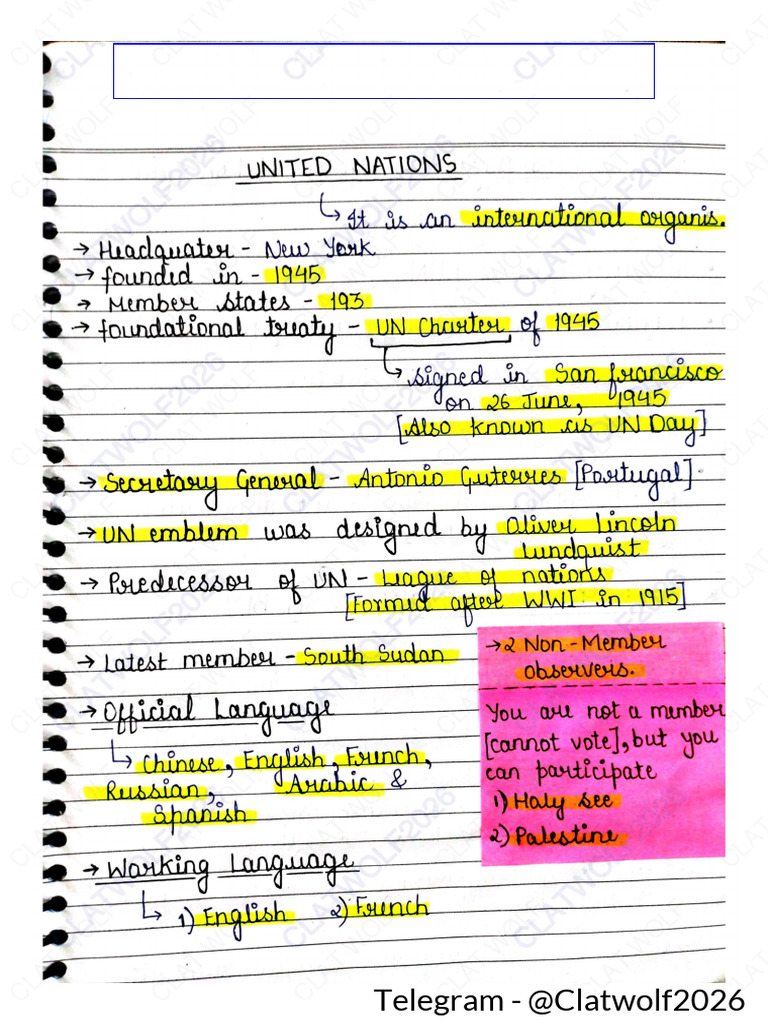 UNITED NATIONS
↳ It is an international organis.
→ Headquater - New York
→ founded in - 1945
→ Member states - 193
→ foundational treaty - UN Charter of 1945
↳ signed in San francisco
on 26 June, 1945
[Also known as UN Day]
→ Secretary General - Antonio Guterres [Portugal]
→ UN emblem was designed by Oliver lincoln
lundquist
→ Predecessor of UN - League of nations
[Formed after WWI in 1915]
→ Latest member - South Sudan
→ 2 Non-Member
observers.
You are not a member
[cannot vote], but you
can participate
1) Holy see
2) Palestine
→ Official Language
↳ Chinese, English, French,
Russian, Arabic &
Spanish
→ Working Language
↳ 1) English 2) French
Telegram - @Clatwolf2026
CLATWOLF2026